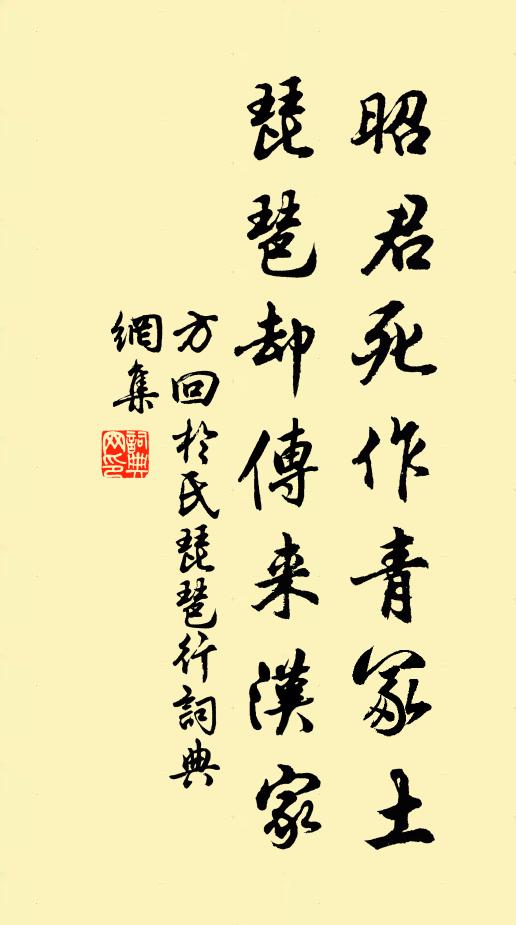 昭君死作青冢土
琵琶却傳来漢家
方回於氏琵琶行詞典
網集
詞典
网印